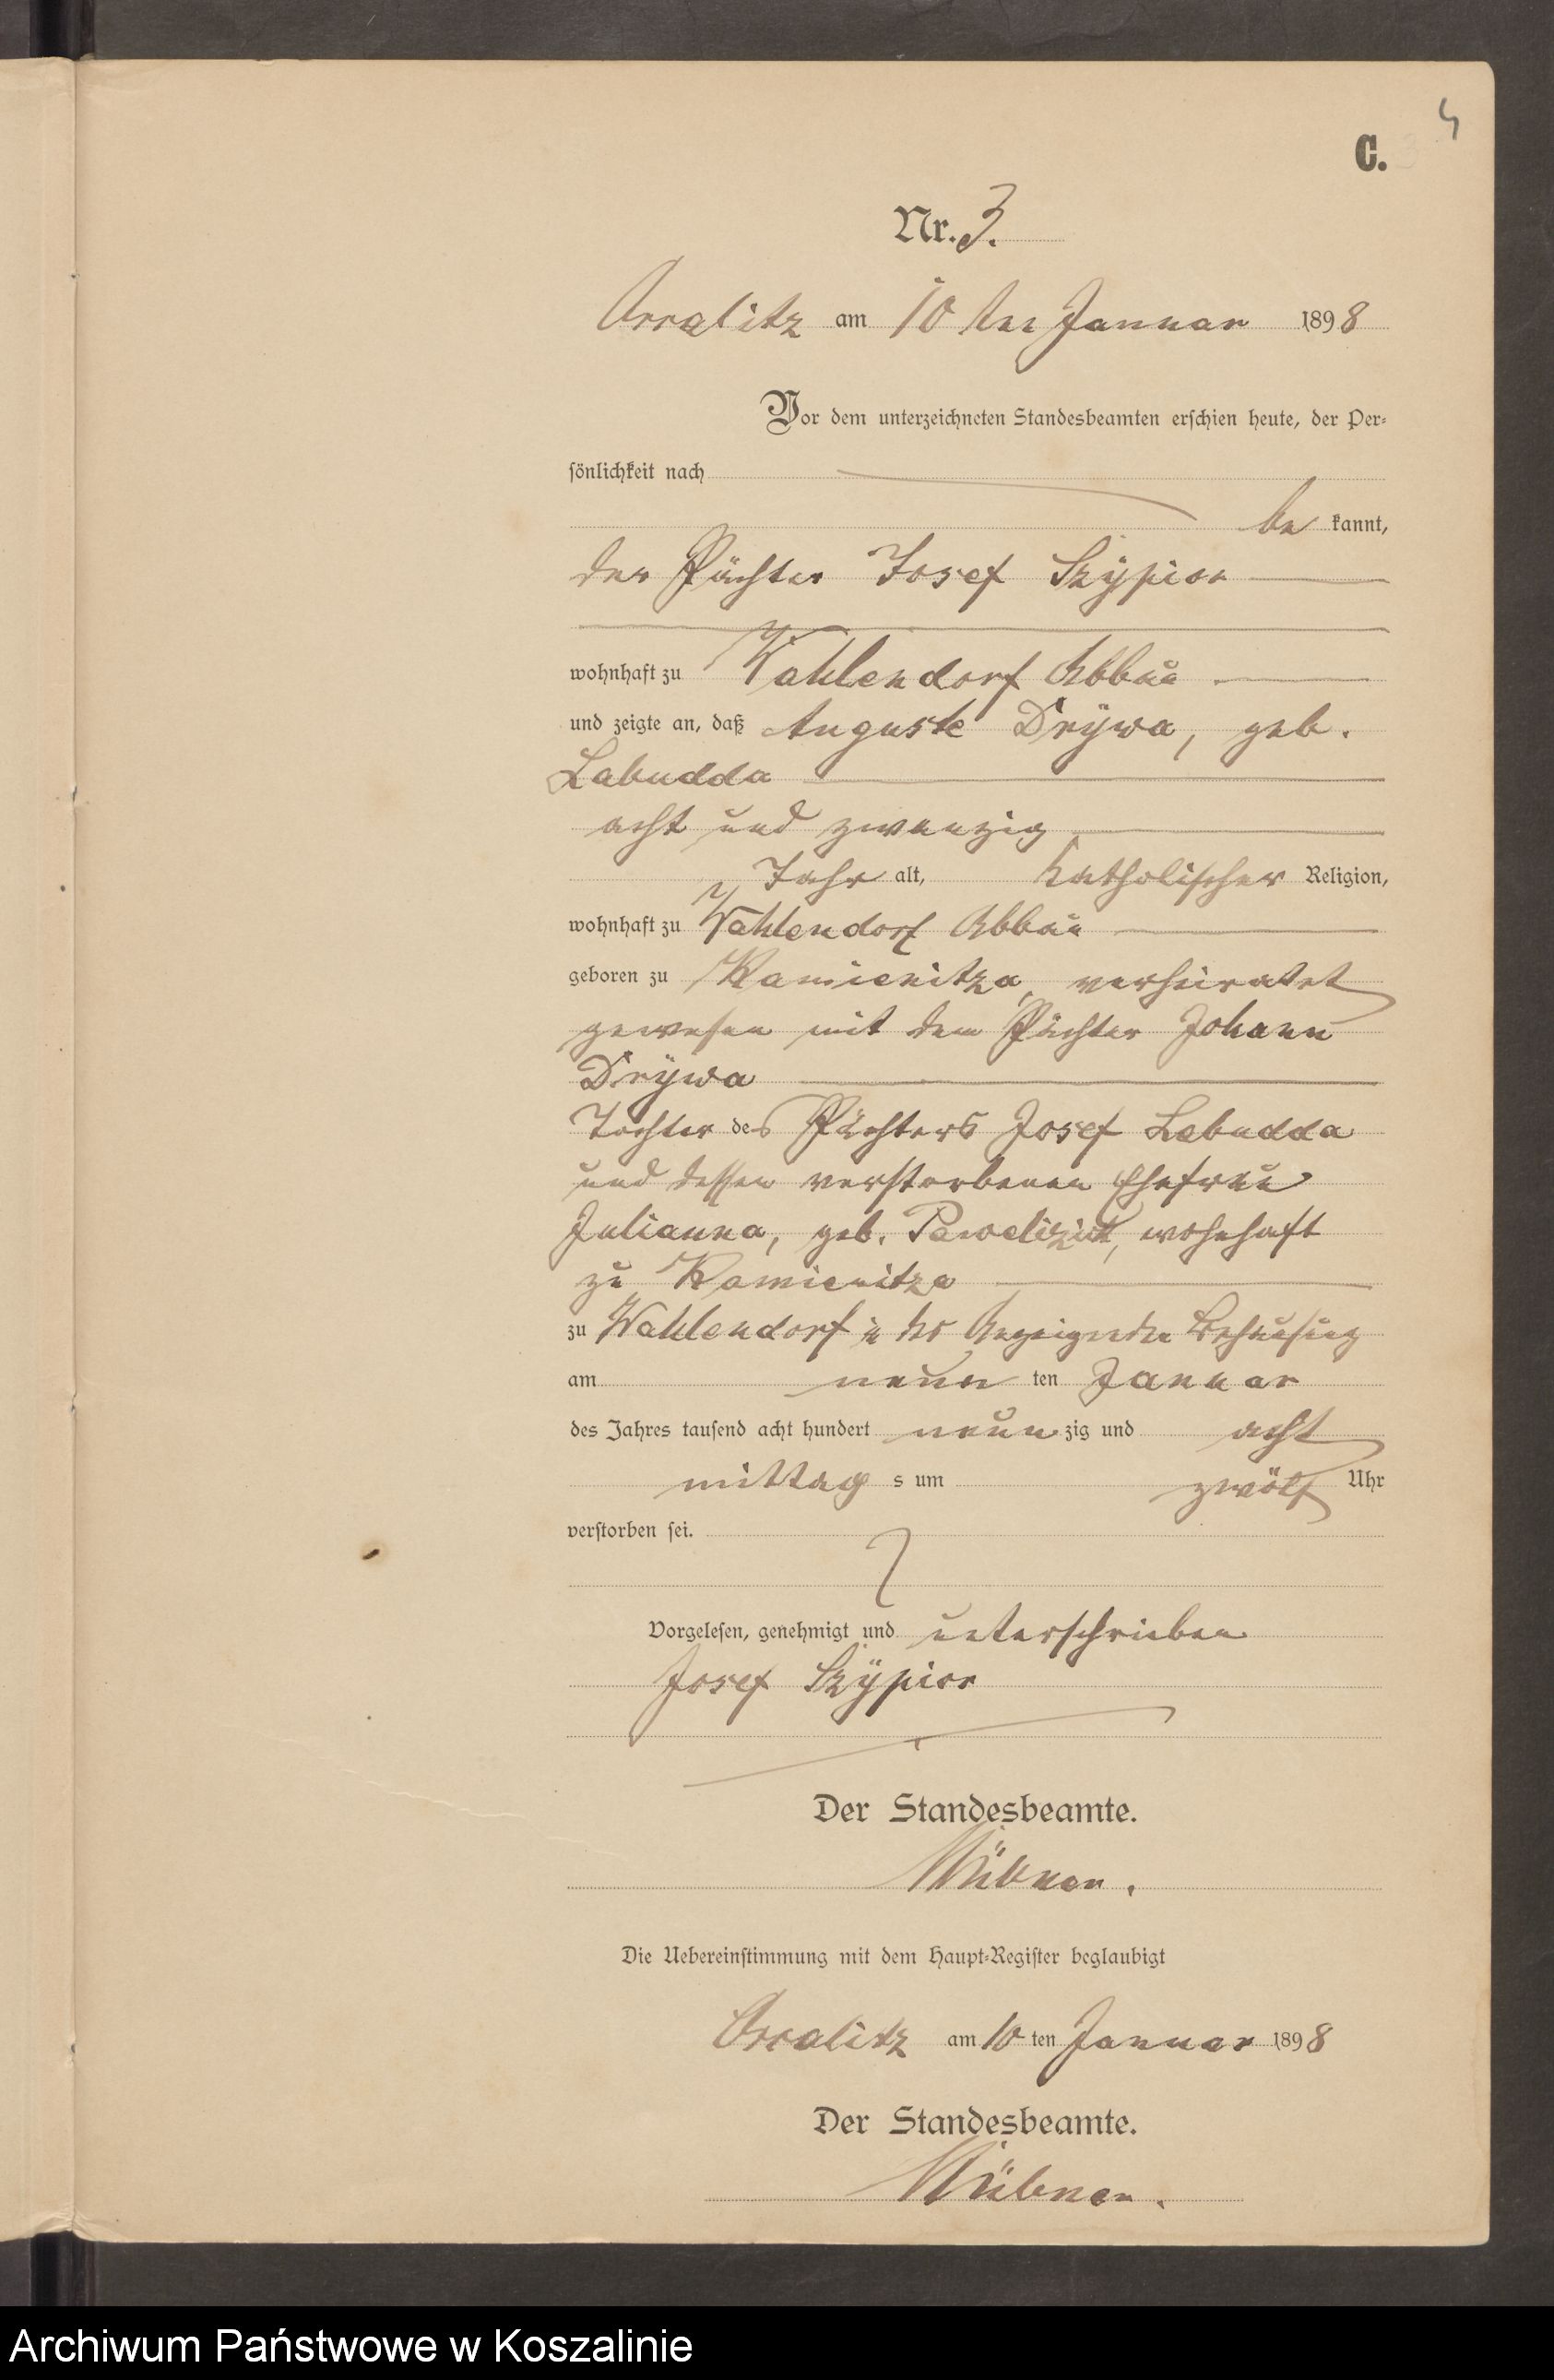 4
C.
Nr. 3.
am 10ten Januar 1898
Vor dem unterzeichneten Standesbeamten erschien heute, der Per-
sönlichkeit nach
be kannt,
der Pächter Josef Szÿpior
wohnhaft zu Wahlendorf Abbau
und zeigte an, daß Auguste Drÿwa, geb.
Labudda
acht und zwanzig
Jahr alt, katholischer Religion,
wohnhaft zu Wahlendorf Abbau
geboren zu Kamienitza, verheiratet
gewesen mit dem Pächter Johann
Drÿwa
Tochter des Pächters Josef Labudda
und dessen verstorbenen Ehefrau
Julianna, geb. wohnhaft
zu Kamienitza
zu Wahlendorf in des Anzeigenden Behausung
am neun ten Januar
des Jahres tausend acht hundert neun zig und acht
mittag s um zwölf Uhr
verstorben sei.
Vorgelesen, genehmigt und unterschrieben
Josef Szÿpior
Der Standesbeamte.
Die Uebereinstimmung mit dem Haupt-Register beglaubigt
am 10 ten Januar 1898
Der Standesbeamte.
Archiwum Państwowe w Koszalinie